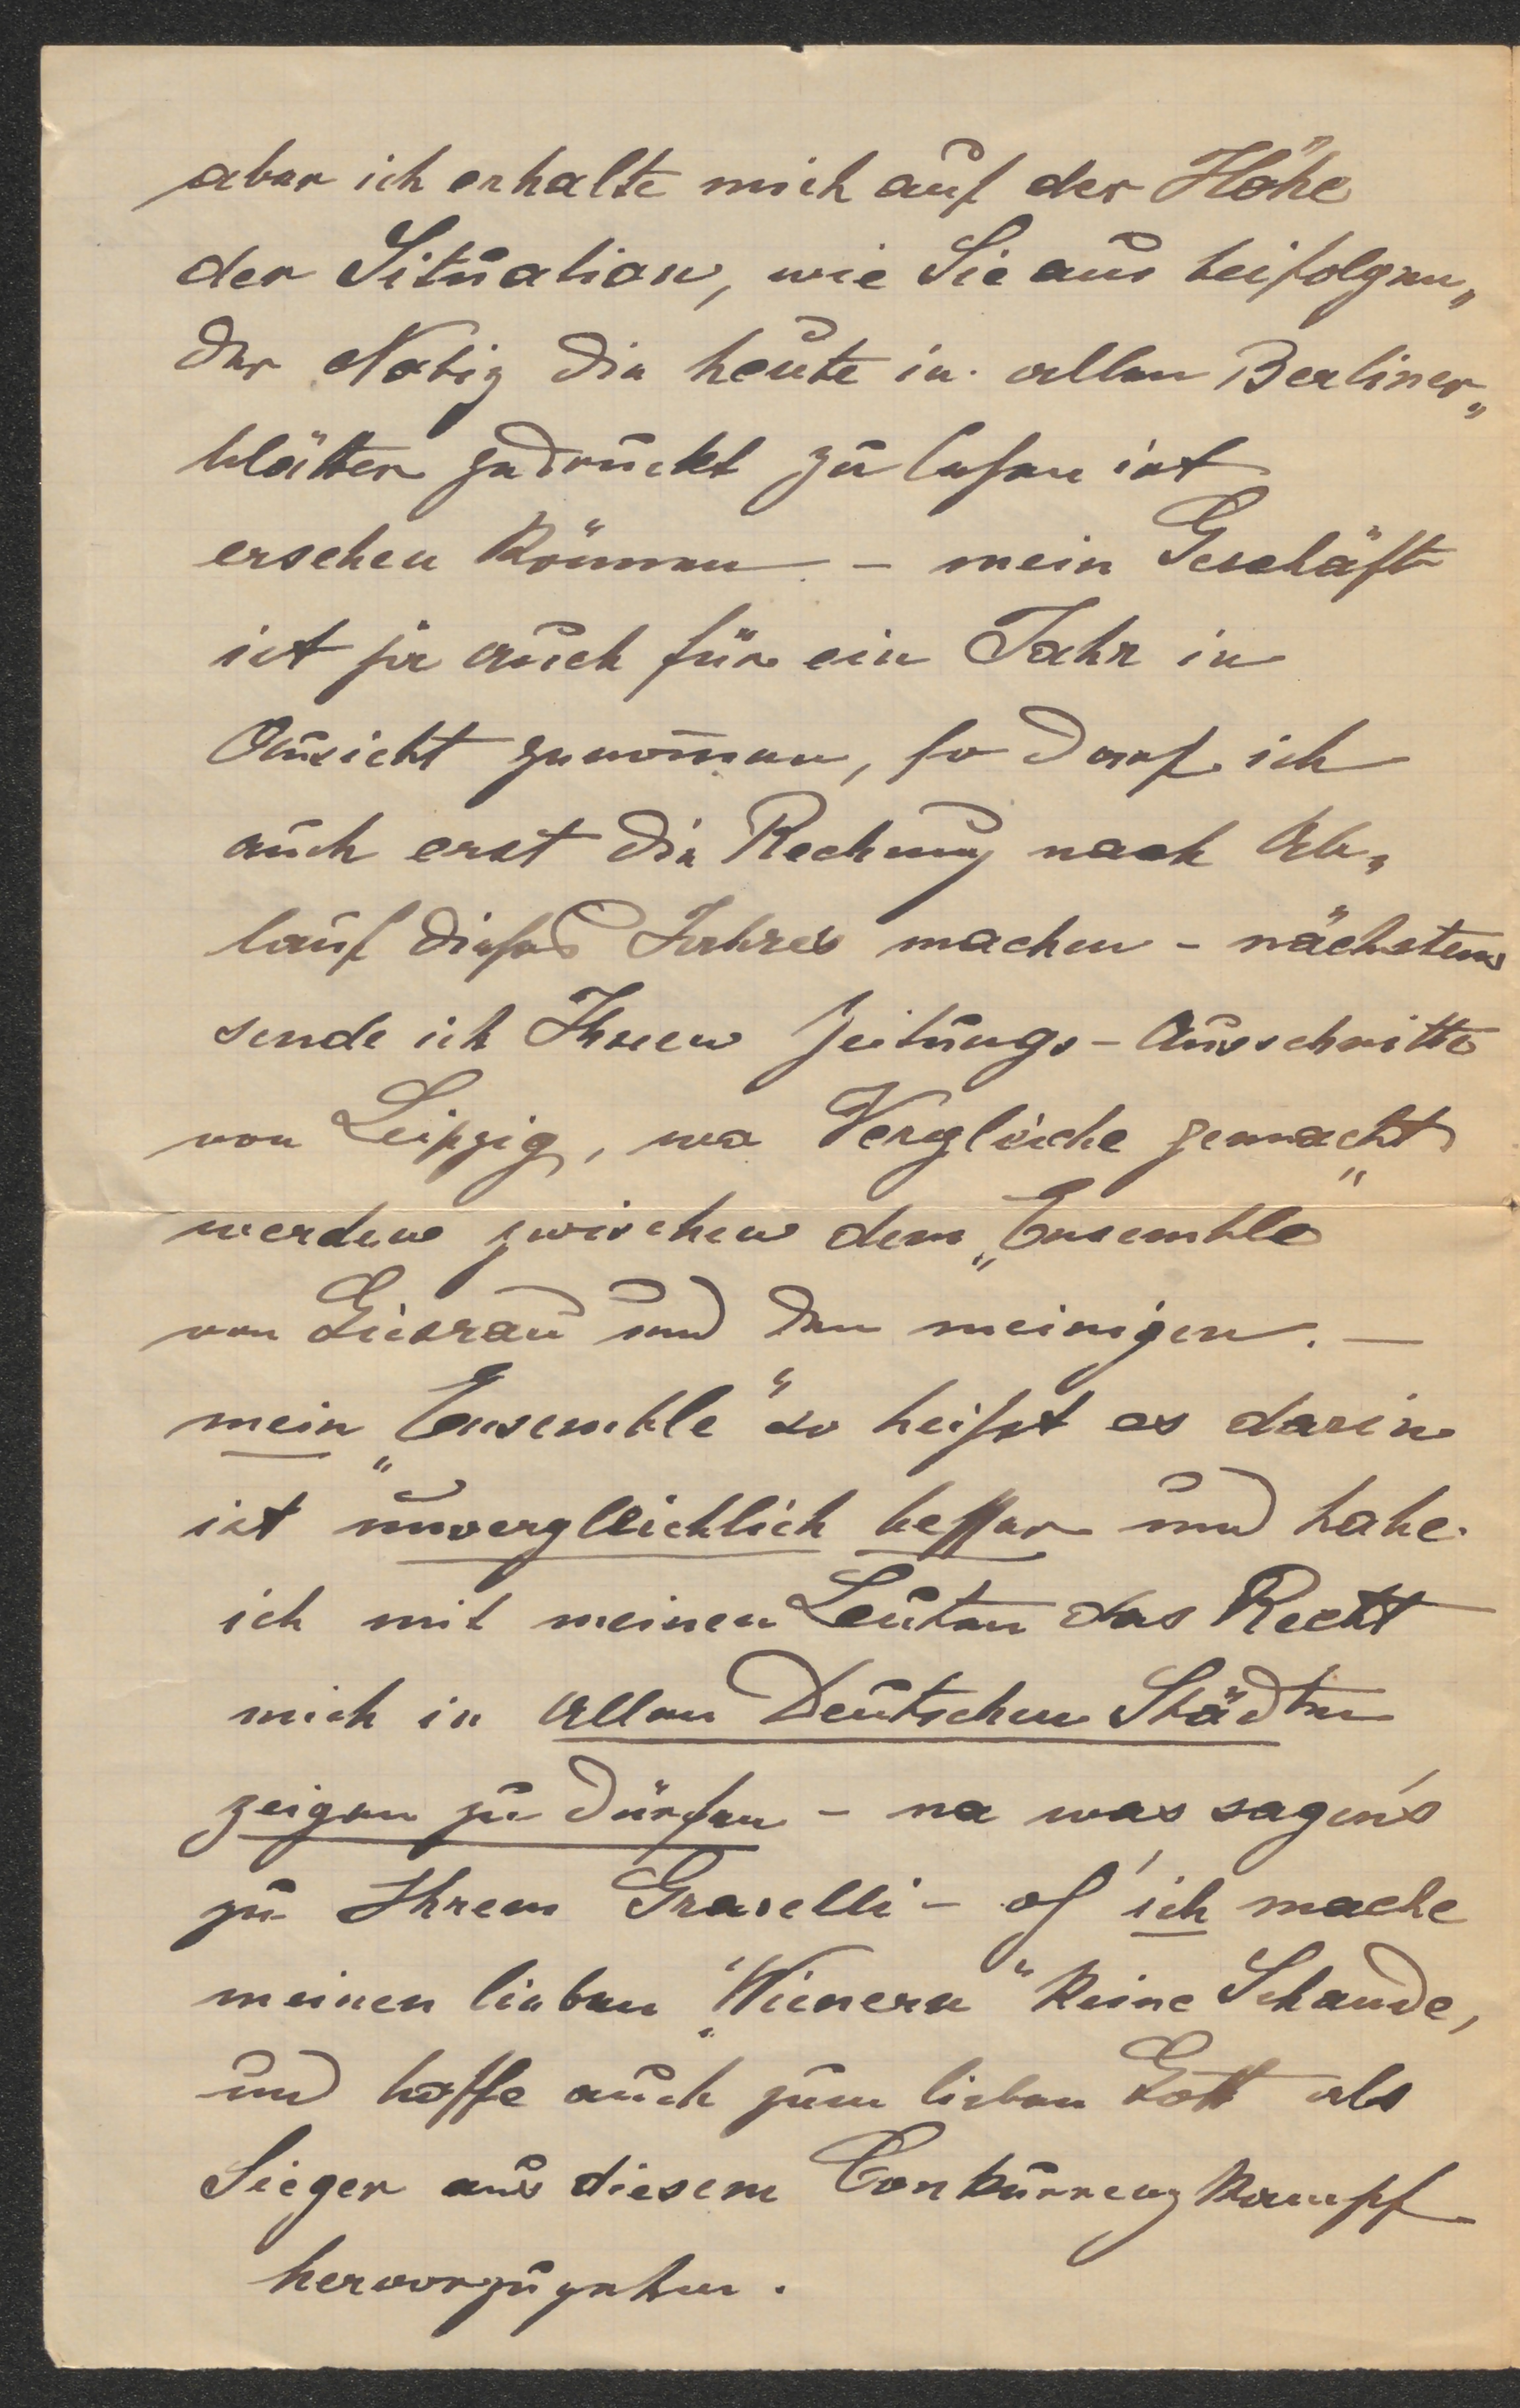 aber ich erhalte mich auf der Höhe
der Situation, wie Sie aus beifolgen„
der Notiz die heute in allen Berliner„
blätter gedruckt zu lesen ist
ersehen können – mein Geschäft
ist ja auch für ein Jahr in
Aussicht genom̄en, so darf ich
auch erst die Rechnung nach Ab„
lauf dieses Jahres machen – nächstens
sende ich Ihnen Zeitungs-Ausschnitte
von Leipzig, wo Vergleiche gemacht
werden zwischen dem „Ensemble“
von und den meinigen. –
mein „Ensemble“ so heißt es darin
ist unvergleichlich besser und habe
ich mit meinen Leuten das Recht
mich in allen Deutschen Städten
zeigen zu dürfen – na was sagen's
zu Ihrem Graselli – o' ich mache
meinen lieben „Wienern“ keine Schande,
und hoffe auch zum lieben Gott als
Sieger aus diesem Conkurrenzkampf
hervorzugehen.